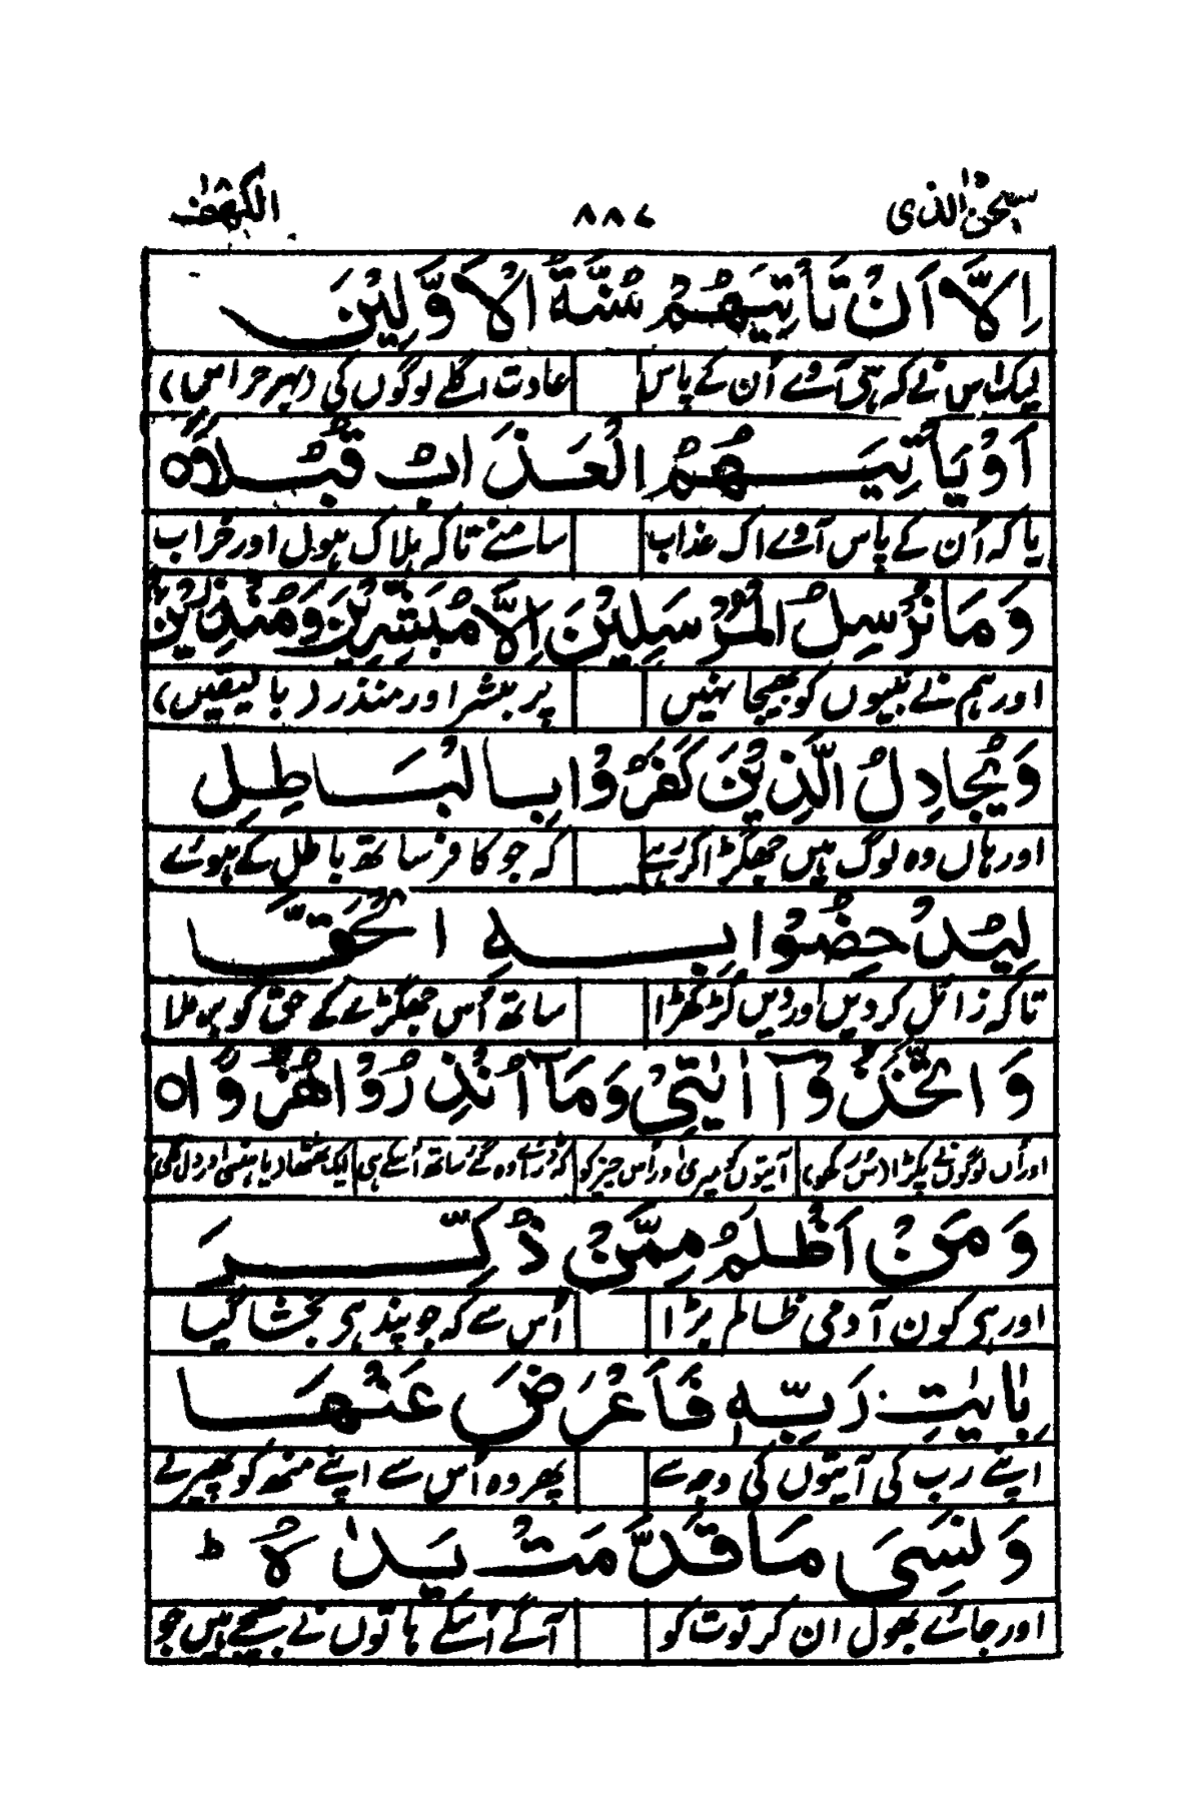 سبحٰن الذی ۸۸۷ الکهف ۱۸
اِلَّاۤ اَنْ تَاْتِیَهُمْ سُنَّةُ الْاَوَّلِیْنَ
لیک اس نے کہ ہی آوے اُن کے پاس عادت اگلے لوگوں کی (بہر حراس)
اَوْ یَاْتِیَهُمُ الْعَذَابُ قُبُلًا ۝
یا کہ اُن کے پاس آوے اک عذاب سامنے تاکہ ہلاک ہوں اور خراب
وَمَا نُرْسِلُ الْمُرْسَلِیْنَ اِلَّا مُبَشِّرِیْنَ وَمُنْذِرِیْنَ
اور ہم نے نبیوں کو بھیجا نہیں پر مبشر اور منذر (با لیقیں)
وَیُجَادِلُ الَّذِیْنَ كَفَرُوْا بِالْبَاطِلِ
اور ہاں وہ لوگ ہیں جھگڑا کر رہے کہ جو کافر ساتھ باطل کے ہوئے
لِیُدْحِضُوْا بِهِ الْحَقَّ
تاکہ زائل کر دیں اور دیں لڑکھڑا ساتھ اُس جھگڑے کے حق کو بر ملا
وَاتَّخَذُوْۤا اٰیٰتِیْ وَمَاۤ اُنْذِرُوْا هُزُوًا ۝
اور اُں لوگوں نے پکڑا (سُن رکھو) آیتوں کو میری اور اُس چیز کو کہ ڈرائے وہ گئے ساتھ اُسکے ہی ایک ٹھٹھا دیا ہنسی اور دل لگی)
وَمَنْ اَظْلَمُ مِمَّنْ ذُكِّرَ
اور ہی کون آدمی ظالم بڑا اُس سے کہ جو پند ہی بخشا گیا
بِاٰیٰتِ رَبِّهٖ فَاَعْرَضَ عَنْهَا
اپنے رب کی آیتوں کی وجہ سے پھر وہ اُس سے اپنے منھ کو پھیر لے
وَنَسِیَ مَا قَدَّمَتْ یَدٰهُ ؕ
اور جائے بھول ان کرتوت کو آگے اُسکے ہاتوں نے بھیجے ہیں جو